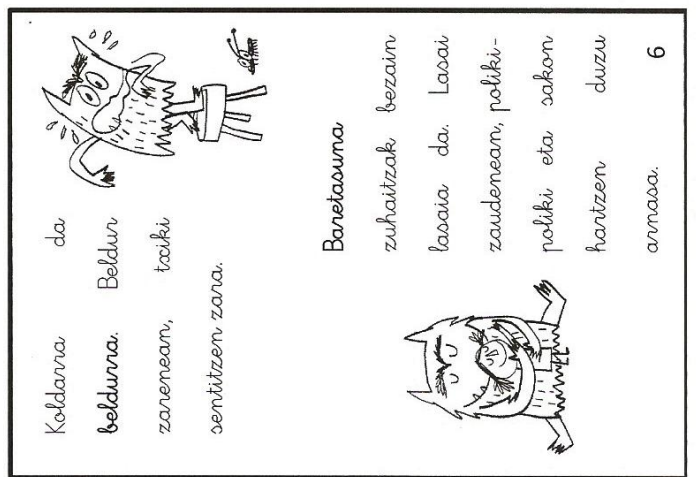 Koldarra da
beldurra. Beldur
zarenean, txiki
sentitzen zara.
Baretasuna
zuhaitzak bezain
lasaia da. Lasai
zaudenean, poliki-
poliki eta sakon
hartzen duzu
arnasa.
6